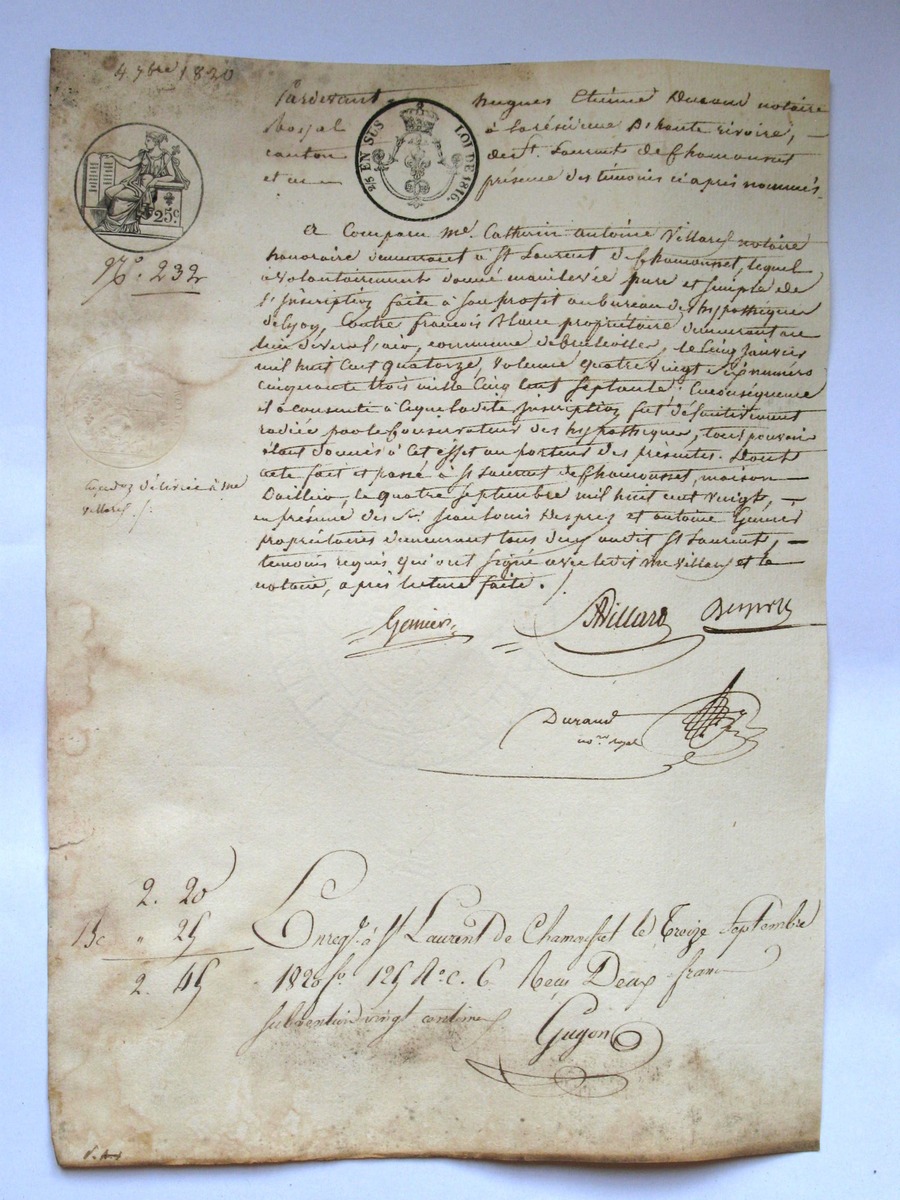 4 7bre 1820
Pardevant hugues Etienne Durand notaire
Royal à la résidence De haute rivoire, —
canton de St. Laurent de Chamousset
et en — présence des témoins ci après nommés
25 EN SUS LOI DE 1816.
25c.
No. 232
a Comparu me. Catherin antoine Villard notaire
honoraire demeurant à St Laurent de Chamousset, lequel
à volontairement donné mainlevée pure et simple de
l'inscription faite à son profit au bureau des hypothèques
de Lyon, Contre françois Blanc propriétaire demeurant au
lieu de commune de brulliolles, le Cinq Janvier
mil huit Cent quatorze, volume quatre vingt numéro
cinquante trois mille Cinq Cent Septante : Enconséquence
il à consenti à Ceque ladite Inscription fut définitivement
radiée par le Conservateur des hypothèques, tous pouvoirs
étant donnés à Cet effet au porteur des présentes. Dont
acte fait et passé à St Laurent de Chamousset, maison —
le quatre Septembre mil huit cent vingt, —
en présence des Srs. Jean Louis Desprez et antoine
propriétaires demeurant tous deux audit St Laurent, —
témoins requis qui ont signé avec ledit me Villard et le
notaire, après lecture faite.
délivrée à me
Villard ./.
Villard
Durand
no.re royal
2. 20
" 25
2. 45
Enregt. à St Laurent de Chamousset le Treize Septembre
1820 fo. 125 Ro. c. 6 Reçu Deux francs
subvention vingt centimes
Guyon